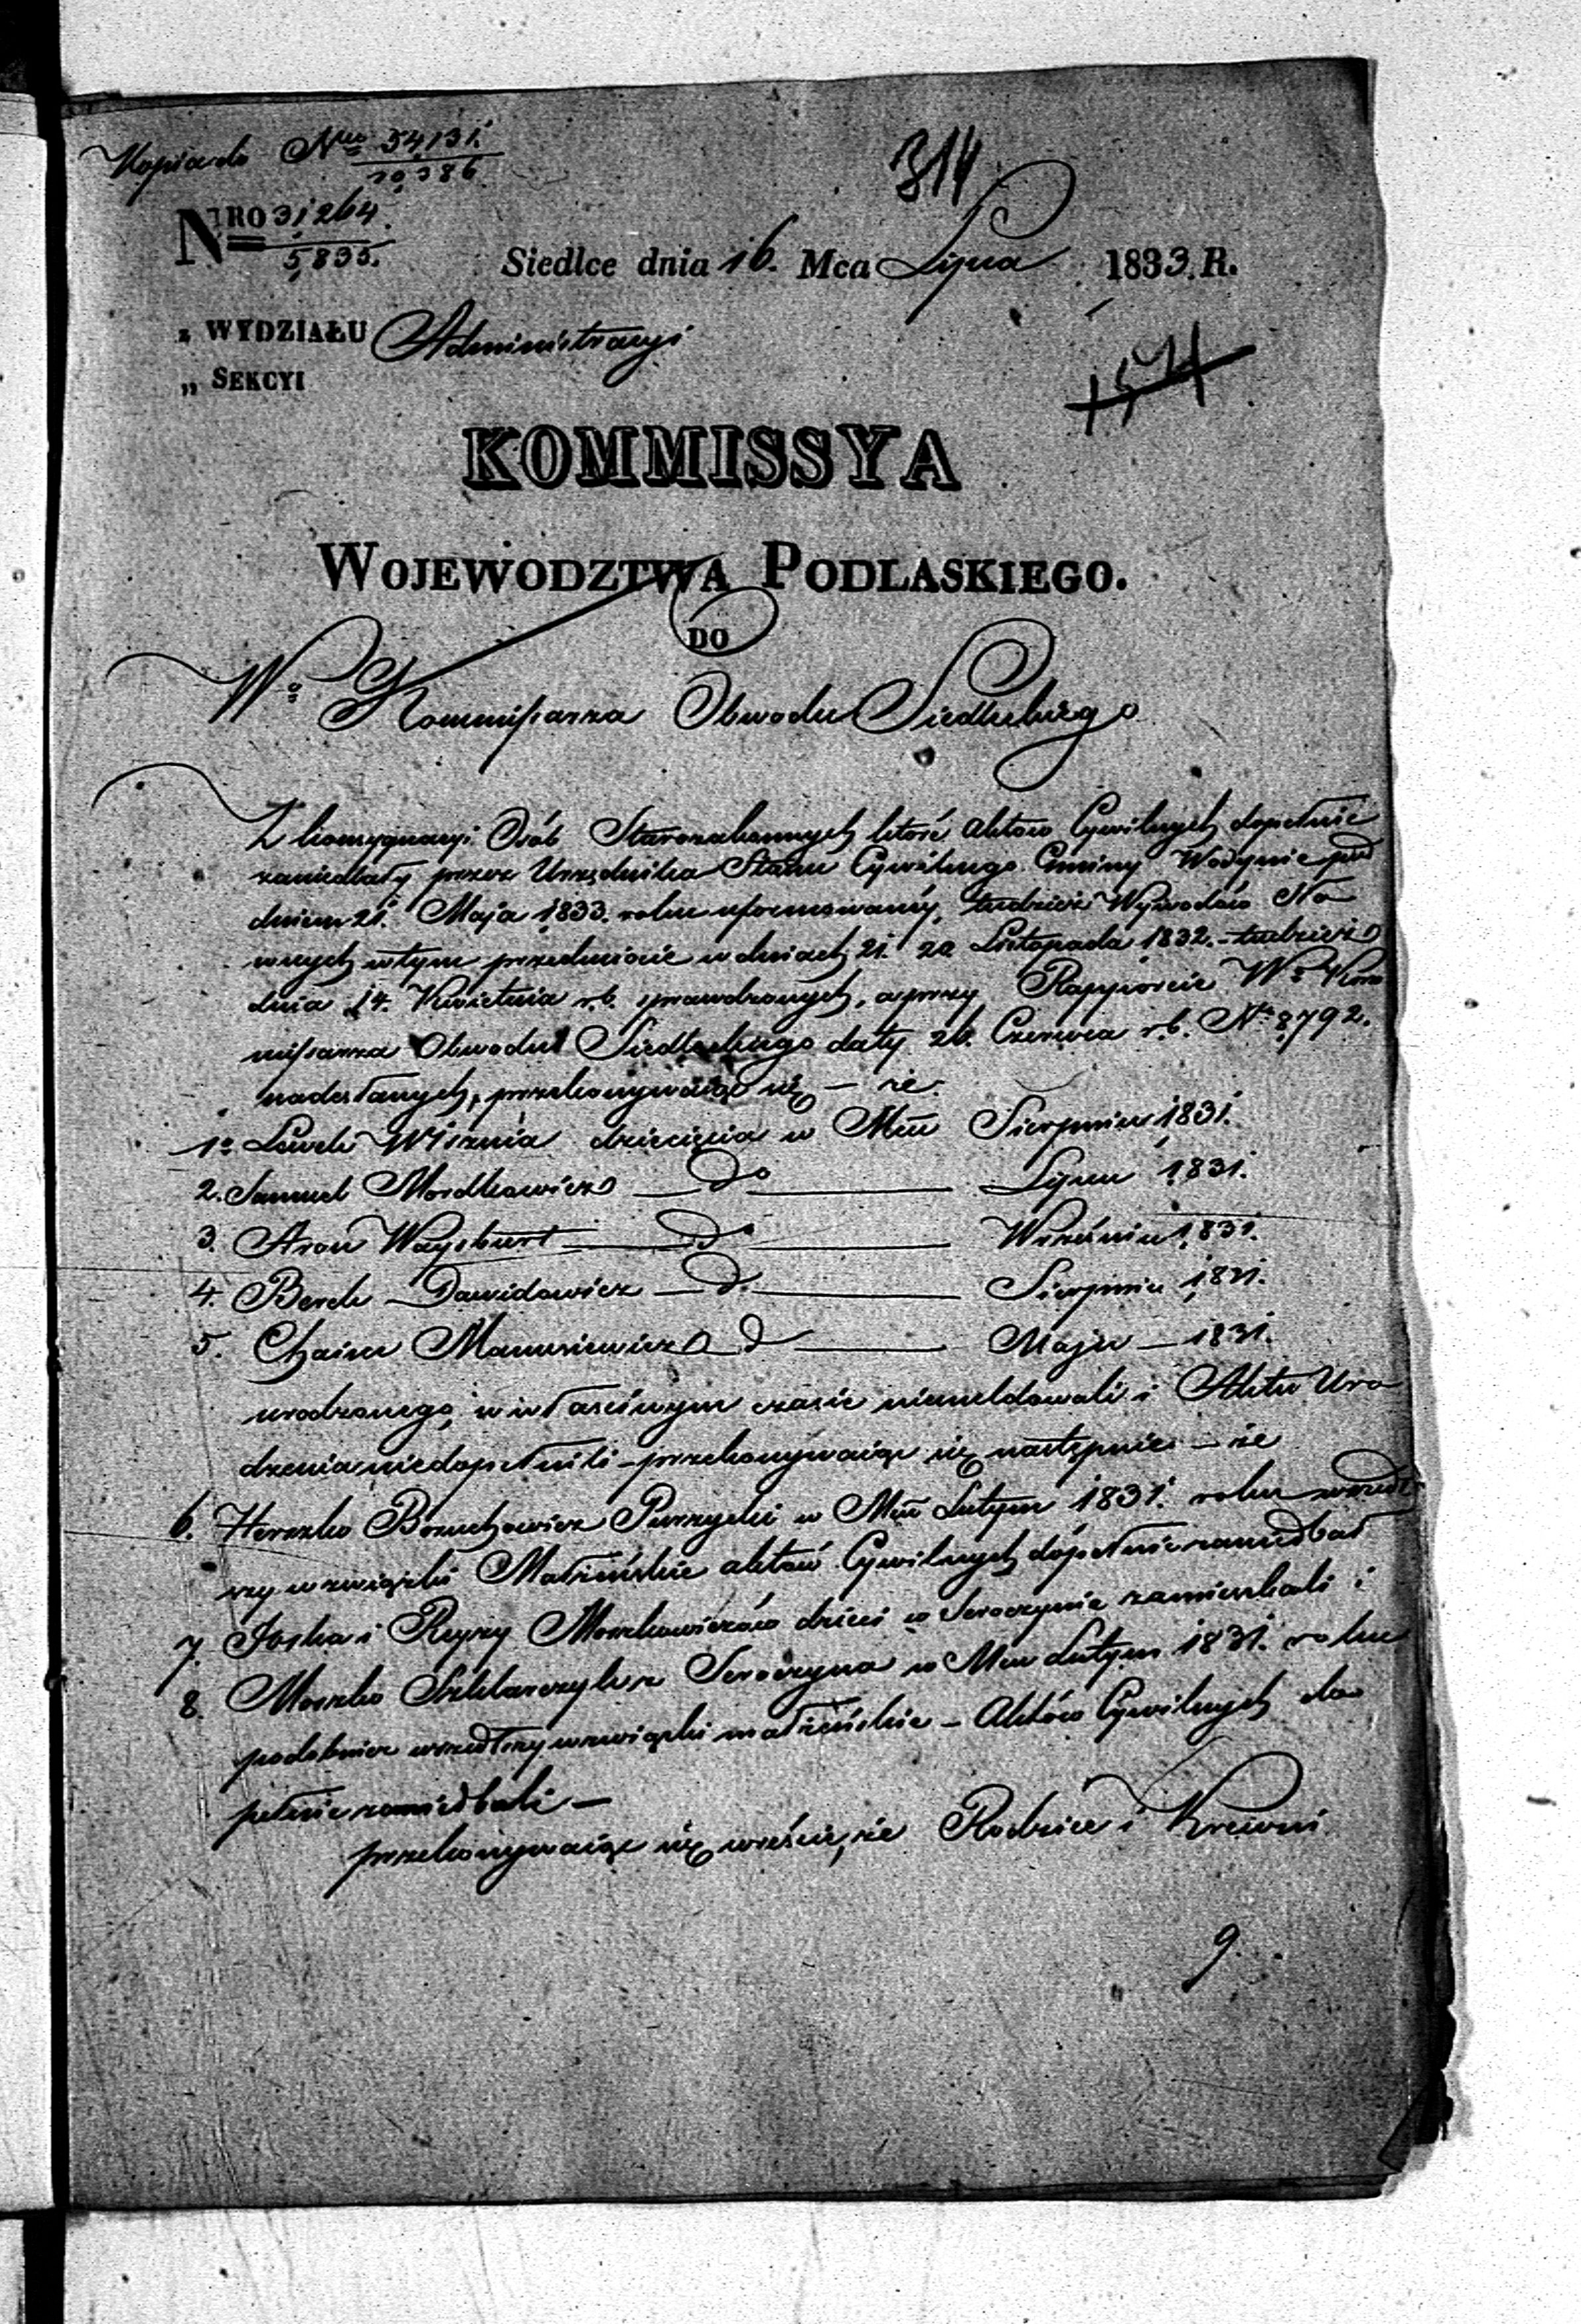 Kopia do Nro 54131.
10,386
314
NRO 31264.
5,835.
Siedlce dnia 16. Mca Lipca 1833. R.
z WYDZIAŁU Administracyi
„ SEKCYI
KOMMISSYA
WOJEWODZTWA PODLASKIEGO.
DO
Wo Kommissarza Obwodu Siedleckiego
Z konsygnacyi Osób Starozakonnych które Aktów Cywilnych dopełnić
zaniedbały przez Urzędnika Stanu Cywilnego Gminy Wodynie pod
dniem 21. Maja 1833. roku uformowanéy, tudzież Wywodów Sło-
wnych w tym przedmiocie w dniach 21. 20 Listopada 1832. - tudzież
dnia 14. Kwietnia r.b. sprawdzonych, a przy Rapporcie Wo Kom
missarza Obwodu Siedleckiego daty 26. Czerwca r.b. No 8,792.
nadesłanych, przekonywaiąc się — że.
1o Lewek Wisznia dziecięcia w Mcu Sierpniu 1831.
2. Samuel Mordkowicz — do — Lipcu 1831.
3. Aron Waysburt — do — Wrześniu 1831.
4. Berek Dawidowicz — d. — Sierpniu 1831.
5. Chaim Manusiewicz — d — Maju — 1831.
urodzonego, w właściwym czasie niemeldowali i Aktu Uro
dzenia niedopełnili - przekonywaiąc się następnie — że
6. Herszko Boruchowicz Purzycki w Mcu Lutym 1831. roku wszedł
szy w związki Małżeńskie aktów Cywilnych dopełnić zaniedbał
7. Joska i Reyzy Moszkowiczów dzieci w Seroczynie zamieszkali i
8. Moszko Szklarczyk z Seroczyna w Mcu Lutym 1831. roku
podobnież wszedłszy w związki małżeńskie - Aktów Cywilnych do
pełnić zaniedbali —
przekonywaiąc się wreście, że Rodzice i Krewni
9.